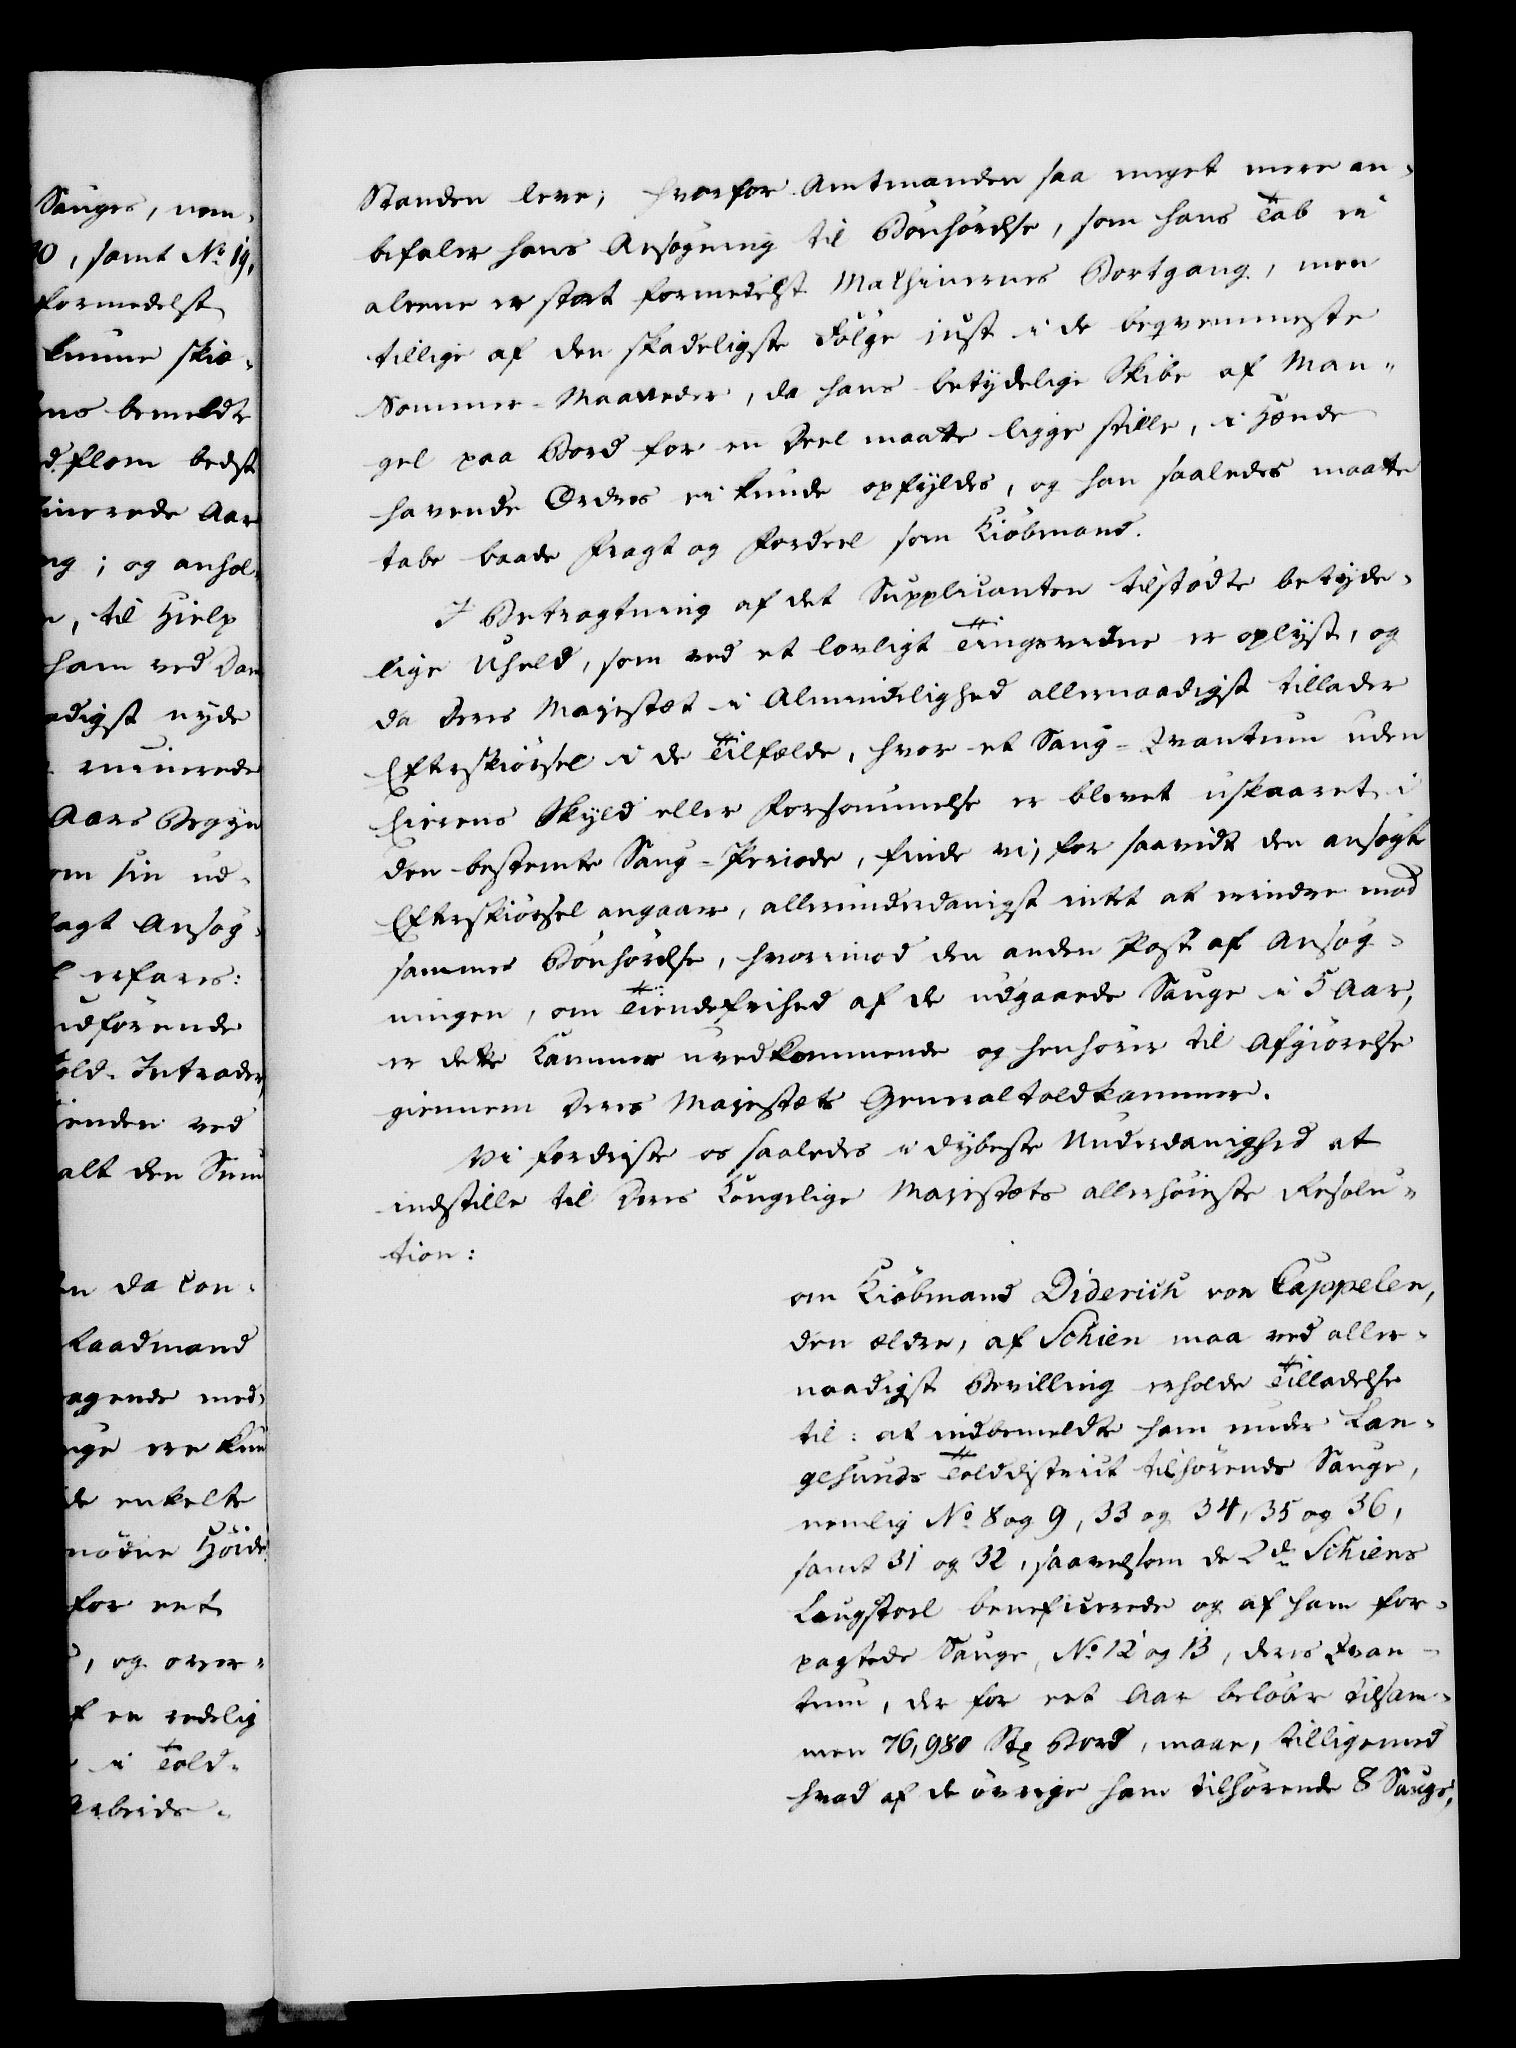 Sauger, nem-
0, samt No 19,
formedelst
kunne skiæ-
ens bemeldte
d flom bedst
inerede Aar
ng; og anhol-
n, til Hielp
ham ved Dam
adigst nyde
ruinerede
Aars Begyn
om sin ud-
lagt Ansøg-
l erfares:
udførende
old-Intrader,
ienden ved
alt den Sum
en da Con-
Raadmand
agende med-
uge ere kun
de enkelte
nödne Höide
for eet
, og over-
f en redelig
i Told-
Arbeids-
Standen leve; hvorfor Amtmanden saa meget mere an-
befaler hans Ansøgning til Bönhörelse, som hans Tab ei
alleene er stort formedelst Mathinernes Bortgang, men
tillige af den skadeligste Følge just i de beqvemmeste
Sommer-Maaneder, da hans betydelige Skibe af Man-
gel paa Bord for en Deel maatte ligge stille, i Hænde
havende Ordres ei kunde opfyldes, og han saaledes maatte
tabe baade Fragt og Fordeel som Kiöbmand.
I Betragtning af det Supplicanten tilstödte betyde-
lige Uheld, som ved et lovligt Tingsvidne er oplyst, og
da Deres Majestæt i Almindelighed allernaadigst tillader
Efterskiörsel i de Tilfælde, hvor et Saug-Qvantum uden
Eierens Skyld eller Forsömmelse er blevet uskaaret i
den bestemte Saug-Periode, finde vi, for saavidt den ansøgte
Efterskiörsel angaaer, allerunderdanigst intet at erindre mod
sammes Bönhörelse, hvorimod den anden Post af Ansøg-
ningen, om Tiendefrihed af de udgaaede Sauge i 5 Aar,
er dette Kammer uvedkommende og henhörer til Afgiörelse
giennem Deres Majestæts Generaltoldkammer.
Vi fordriste os saaledes i dybeste Underdanighed at
indstille til Deres Kongelige Majestæts allerhöieste Resolu-
tion:
om Kiöbmand Diderich von Cappelen,
den ældre, af Schien maa ved aller-
naadigst Bevilling erholde Tilladelse
til: at indbemeldte ham under Lan-
gesunds Tolddistrict tilhörende Sauge,
nemlig No 8 og 9, 33 og 34, 35 og 36,
samt 31 og 32, saavelsom de 2de Schiens
Laugstoel beneficerede og af ham for-
pagtede Sauge, No 12 og 13, deres Qvan-
tum, der for eet Aar beløber tilsam-
men 76,980 Stk Bord, maae, tilligemed
hvad af de övrige ham tilhörende 8 Sauge,